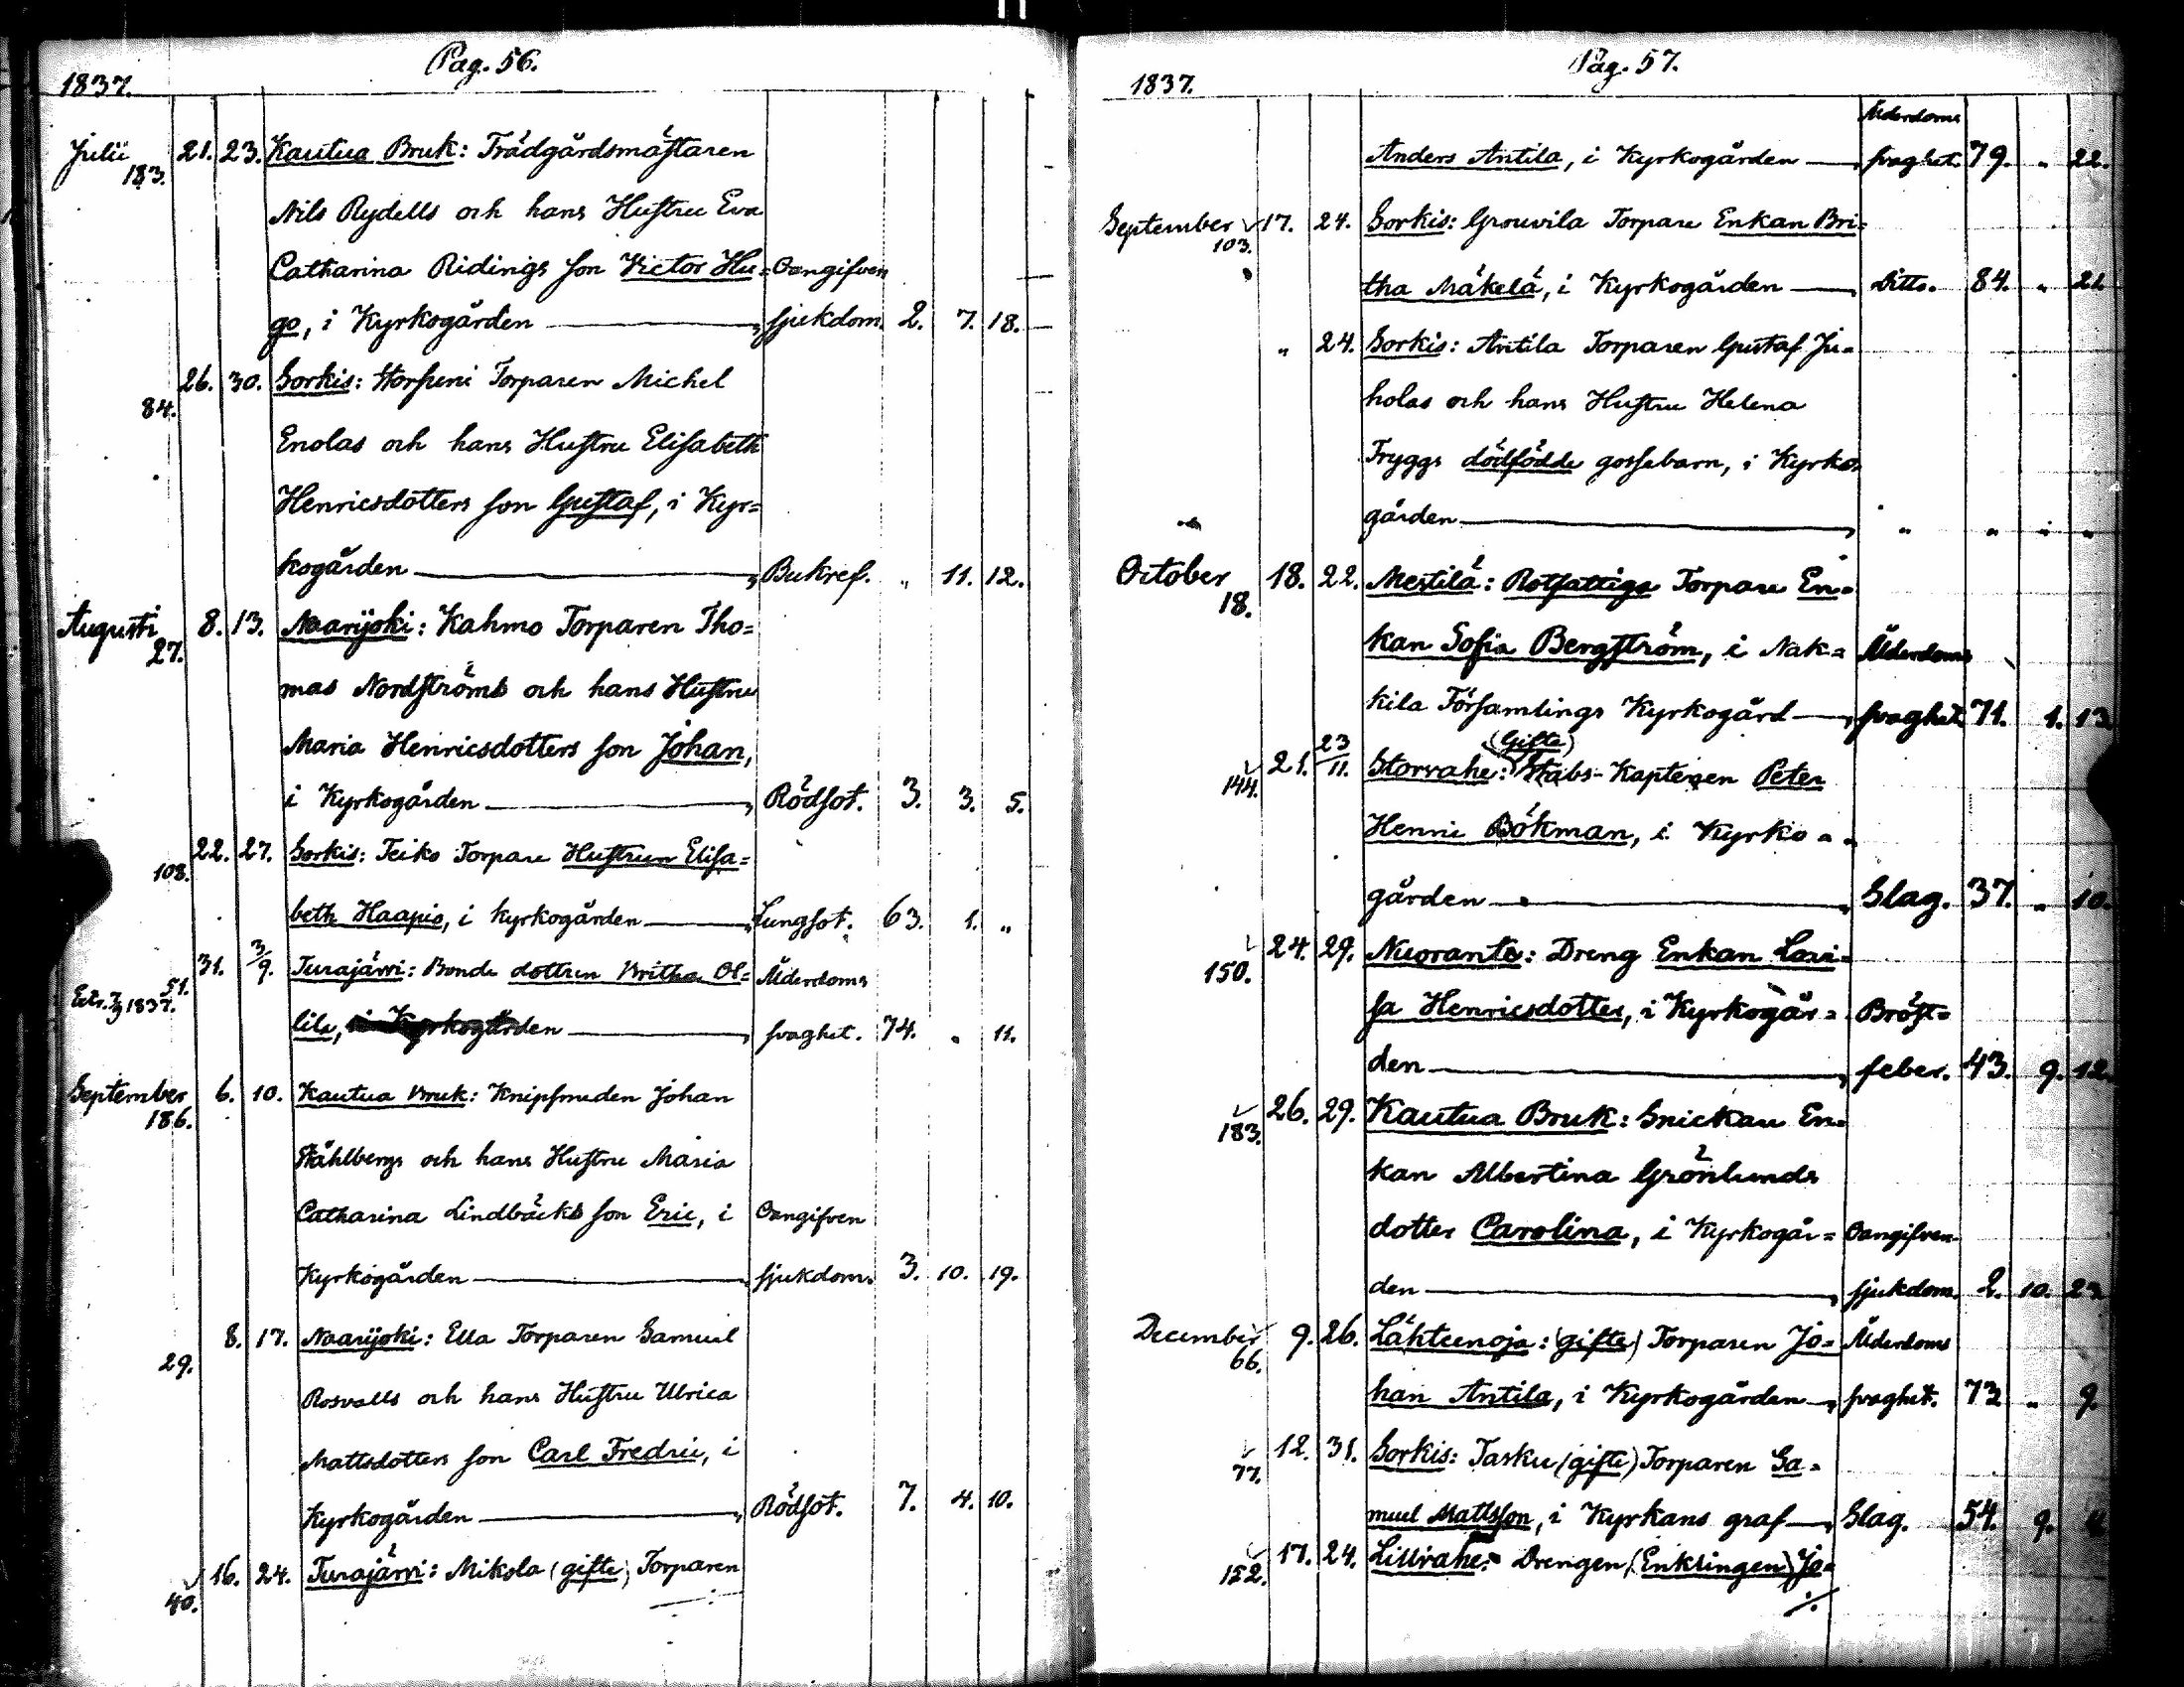 Pag. 56.
1837.
Julii 21. 23. Kautua Bruk: Trädgårdsmästaren
183.
Nils Rydells och hans Hustru Eva
Catharina Ridings son Victor Hu= Oangifven
go, i Kyrkogården sjukdom. 2. 7. 18.
26. 30. Sorkis: Michel
84.
Enolas och hans Hustru Elisabeth
Henricsdotters son Gustaf, i Kyr=
kogården Bukref. " 11. 12.
Augusti 8. 13. Naarijoki: Kahmo Torparen Tho=
27.
mas Nordströms och hans Hustru
Maria Henricsdotters son Johan,
i Kyrkogården Rödsot. 3. 3. 5.
22. 27. Sorkis: Teiko Torpare Hustrun Elisa=
108.
beth Haapio, i kyrkogården Lungsot. 63. 1. "
31. 3/9. Turajärvi: Bonde dottren Britha Ol= Ålderdoms
51.
1837.
lila, i Kyrkogården svaghet. 74. " 11.
September 6. 10. Kautua Bruk: Knipsmeden Johan
186.
Ståhlbergs och hans Hustru Maria
Catharina Lindbäcks son Eric, i Oangifven
Kyrkogården sjukdom. 3. 10. 19.
8. 17. Naarijoki: Ella Torparen Samuel
29.
Rosvalls och hans Hustru Ulrica
Mattsdotters son Carl Fredric, i
Kyrkogården Rödsot. 7. 4. 10.
16. 24. Turajärvi: Mikola (gifte) Torparen
40.
Pag. 57.
1837.
Ålderdoms
Anders Antila, i Kyrkogården svaghet. 79. " 22.
September 17. 24. Sorkis: Grouvila Torpare Enkan Bri=
103.
tha Mäkelä, i Kyrkogården Ditto. 84. " 21
" 24. Sorkis: Antila Torparen Gustaf Ju=
holas och hans Hustru Helena
Tryggs dödfödde gossebarn, i Kyrko=
gården " " " "
October 18. 22. Mestilä: Rotfattiga Torpare En=
18.
kan Sofia Bergström, i Nak= Ålderdoms
kila Församlings Kyrkogård svaghet. 71. 1. 13
(Gifte)
21. 23/11. Storrahe: Stabs-Kaptenen Peter
144.
Henric Bökman, i Kyrko=
gården Slag. 37. " 10.
24. 29. Nuoranto: Dreng Enkan Lovi=
150.
sa Henricsdotter, i Kyrkogår= Bröst=
den feber. 43. 9. 12.
26. 29. Kautua Bruk: Snickare En=
183.
kan Albertina Grönlunds
dotter Carolina, i Kyrkogår= Oangifven
den sjukdom. 2. 10. 23
December 9. 26. Lähteenoja: (gifte) Torparen Jo= Ålderdoms
66.
han Antila, i Kyrkogården svaghet. 73 " 9.
12. 31. Sorkis: Tasku (gifte) Torparen Sa=
77.
muel Mattsson, i Kyrkans graf Slag. 54. 9.
17. 24. Lillrahe: Drengen (Enklingen) Jo=
152.